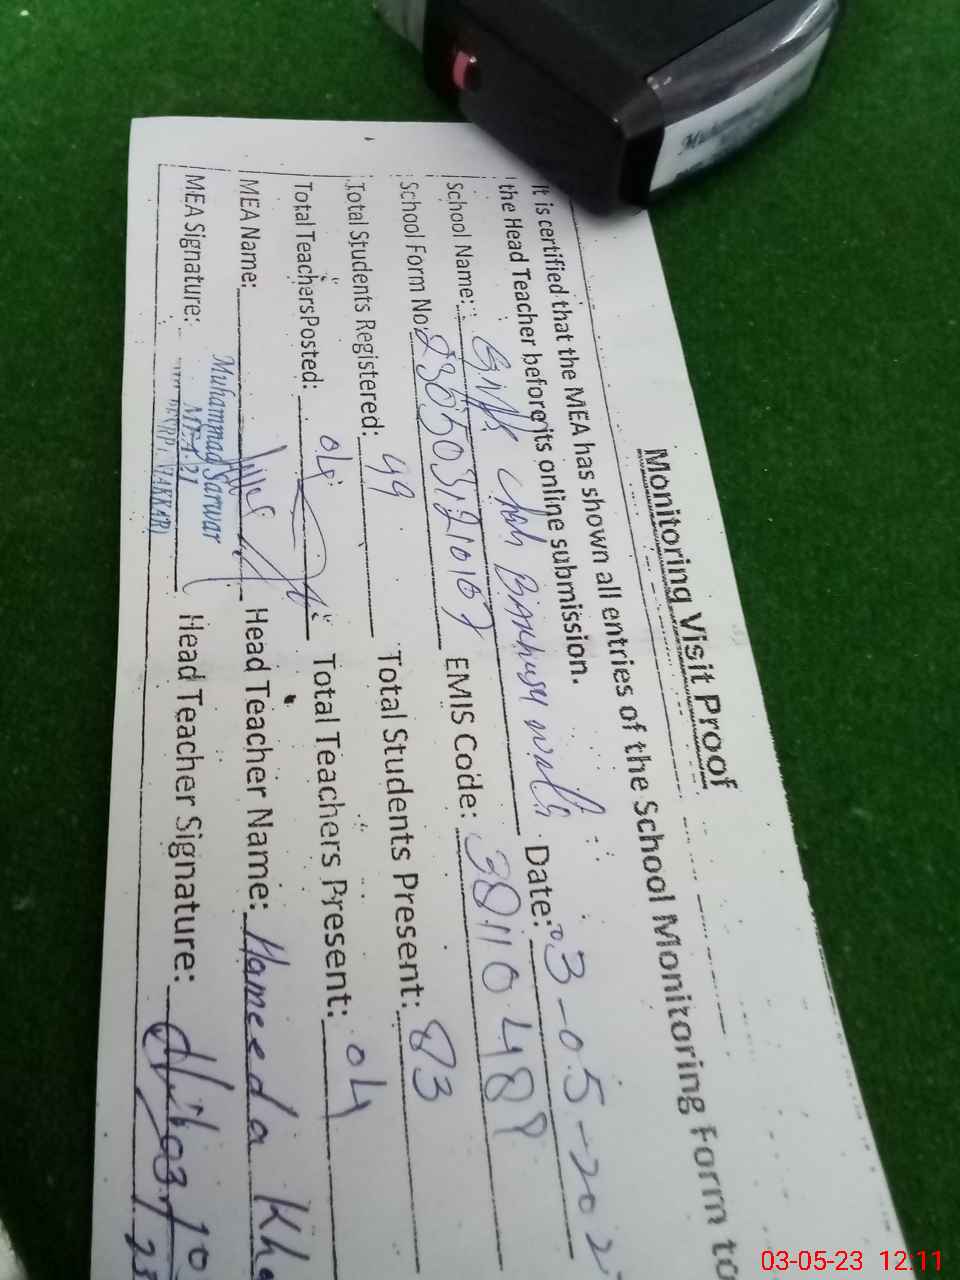 Monitoring Visit Proof
It is certified that the MEA has shown all entries of the School Monitoring Form to
the Head Teacher before its online submission.
School Name: GMPS Chah Date: 03-05-202
School Form No: EMIS Code: 38110488
Total Students Registered: 99 Total Students Present: 83
Total Teachers Posted: 04 Total Teachers Present: 04
MEA Name: Head Teacher Name: Hameeda Kha
MEA Signature: Head Teacher Signature:
Muhammad Sarwar
MEA-21
03-05-23 12:11